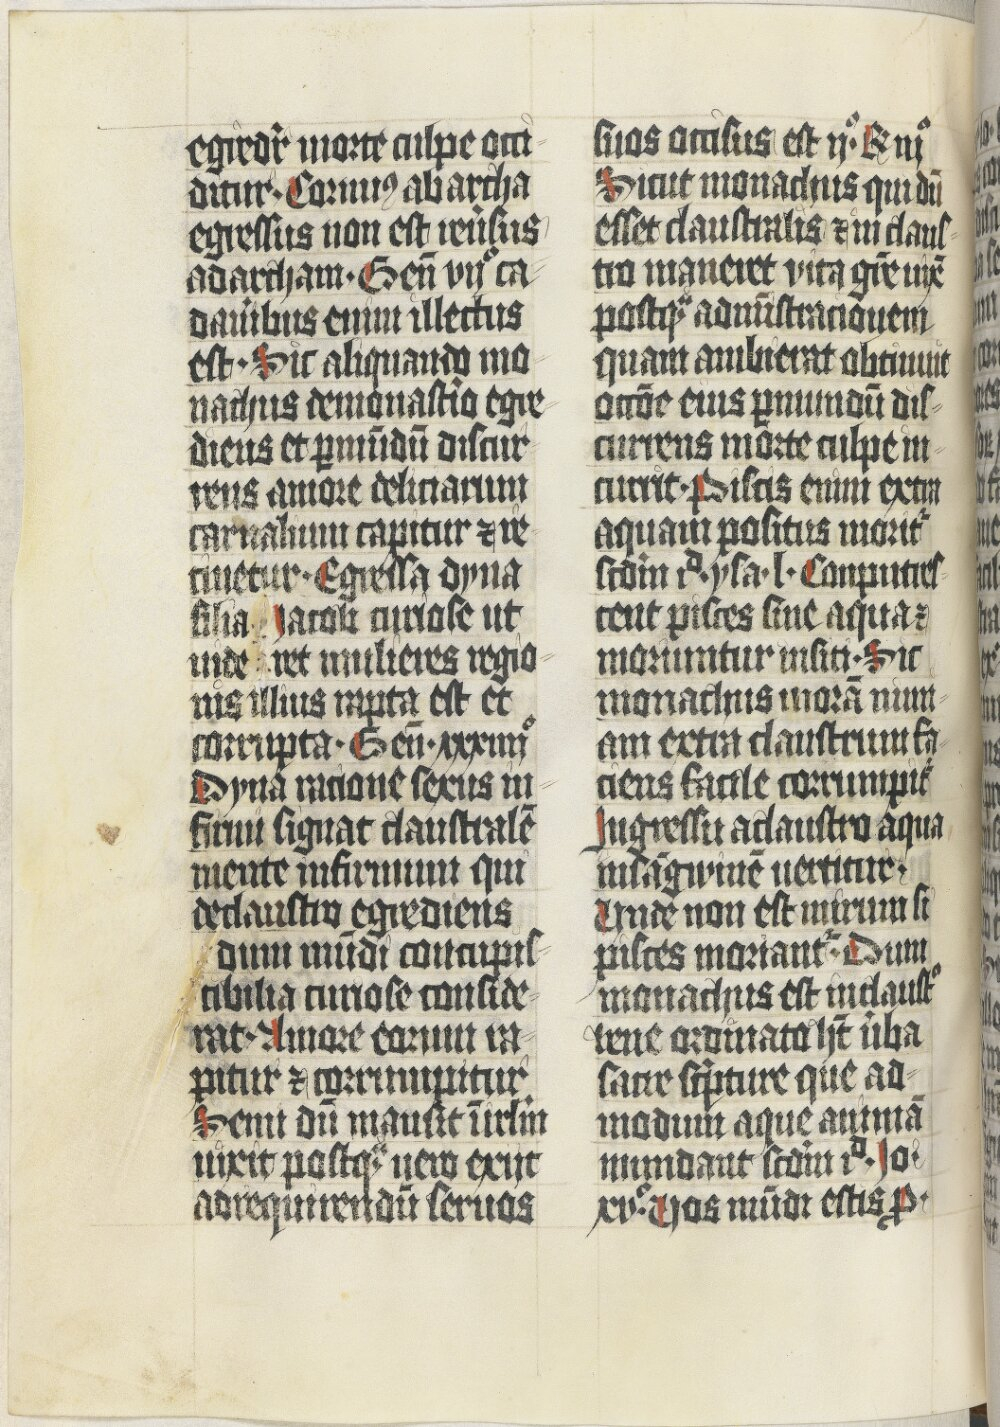 egredr̄ morte culpe occi-
ditur· Coruus ab archa
egressus non est reuͥsus
ad archam· Gen̄ viij° ca-
dauͥibus enim illectus
est· Sic aliquando mo-
nachus de monastͥio egre-
diens et p mūdū discur-
rens amore deliciarum
carnalium capitur ⁊ re-
tinetur· Egressa dyna
filia Jacob curiose ut
uide ret mulieres regio-
nis illius rapta est et
corrupta· Gen̄· xxxiiij°
Dyna racione sexus in-
firmi signat claustralē
mente infirmum qui
de claustro egrediens
dum mūdi concupis-
cibilia curiose conside-
rat· Amore eorum ra-
pitur ⁊ corrumpitur
Semi dū mansit ī irlīm
uixit postqᵃ uero exijt
ad requirendū seruos
suos occisus est ij° R iij°
Sicut monachus qui dū
esset claustralis ⁊ in claus-
tro maneret vita gr̄e uix̄
postqᵃ admīstracionem
quam ambierat obtinuit
occōe eius p mundū dis-
currens morte culpe in-
currit· Piscis enim extra
aquam positus moritᷣ
scdm̄ iᵈ· ysa· l· Conputres-
cent pisces sine aqua ⁊
moriuntur in siti· Sic
monachus morā nim-
iam extra claustrum fa-
ciens facile corrumpitᷣ
Ingressu a claustro aqua
in sāgwinē uertitur·
Unde non est mirum si
pisces moriantᷣ· Dum
monachus est in claustᵒ
bene ordinato ht̄ ūba
sacre scpͥture que ad-
modum aque animā
mundant scdm̄ iᵈ· Jo·
xv°· Vos mūdi estis p·